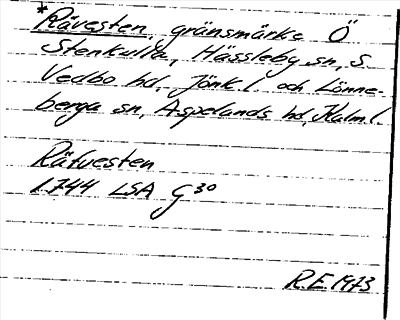 *Rävesten, gränsmärke Ö
Stenkulla, Hässleby sn, S.
Vedbo hd, Jönk.l. och Lönne-
berga sn, Aspelands hd, Kalm.l.
Räfvesten
1744 LSA G30
R.E. 1973